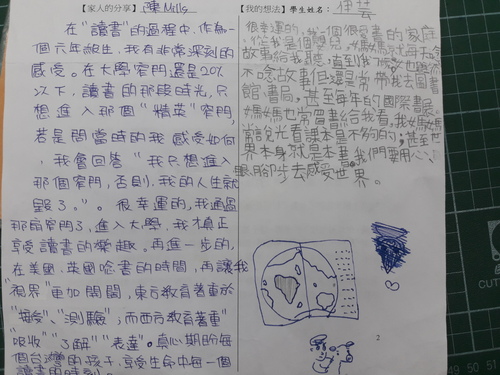 【家人的分享】 陳Mills
在"讀書"的過程中,作為一
個六年級生,我有非常深刻的
感受。在大學窄門還是20%
以下,讀書的那段時光,只
想進入那個"精英"窄門,
若是問當時的我感受如何
,我會回答"我只想進入
那個窄門,否則,我的人生就
毀了。"。很幸運的,我通過
那扇窄門了,進入大學,我才真正
享受讀書的樂趣。再進一步的,
在美國、英國唸書的時間,再讓我
"視界"更加開闊,東方教育著重於
"接受"、"測驗";而西方教育著重
"吸收""了解""表達"。真心期盼每
個台灣的孩子,享受生命中每一個
讀書的時刻。
【我的想法】學生姓名: 伊芸
很幸運的,我有個很愛書的家庭
,從我是個嬰兒,媽媽就每天唸
故事給我聽,直到我
不唸故事但還是常帶我去圖書
館、書局,甚至每年的國際書展。
媽媽也常留書給我看,我媽媽
常說光看課本是不夠的;甚至世
界本身就是本書,我們要用心、
眼、腳步去感受世界。
2
CUT
48 49 50 51